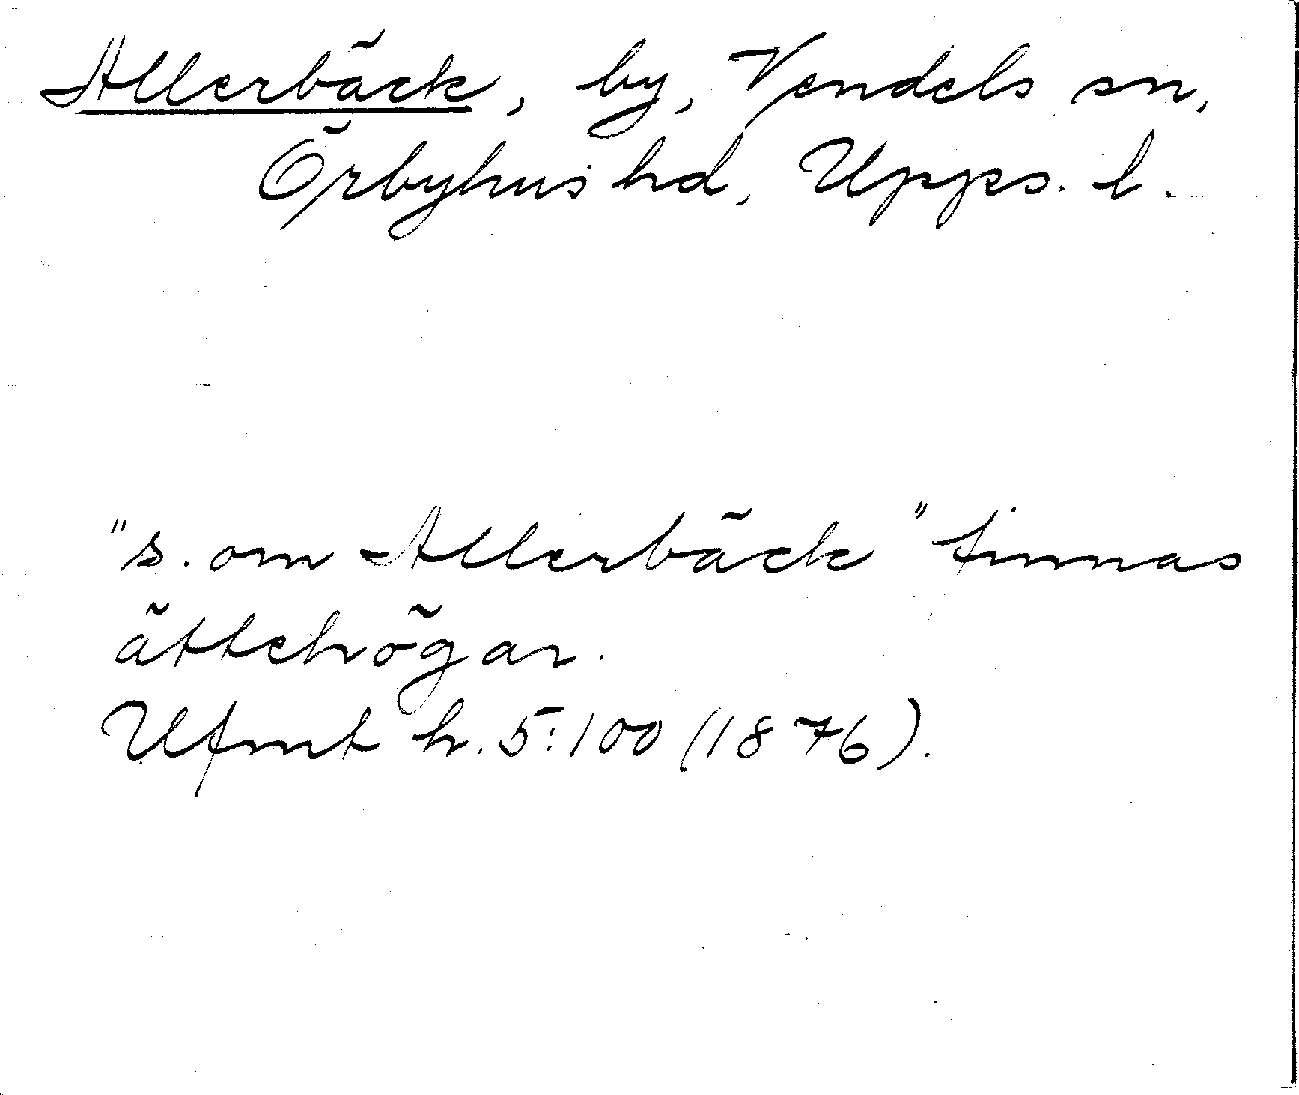 Allerbäck, by, Vendels sn,
Örbyhus hd, Upps. l.
"s. om Allerbäck" finnas
ättehögar.
Ufmt h. 5:100 (1876).